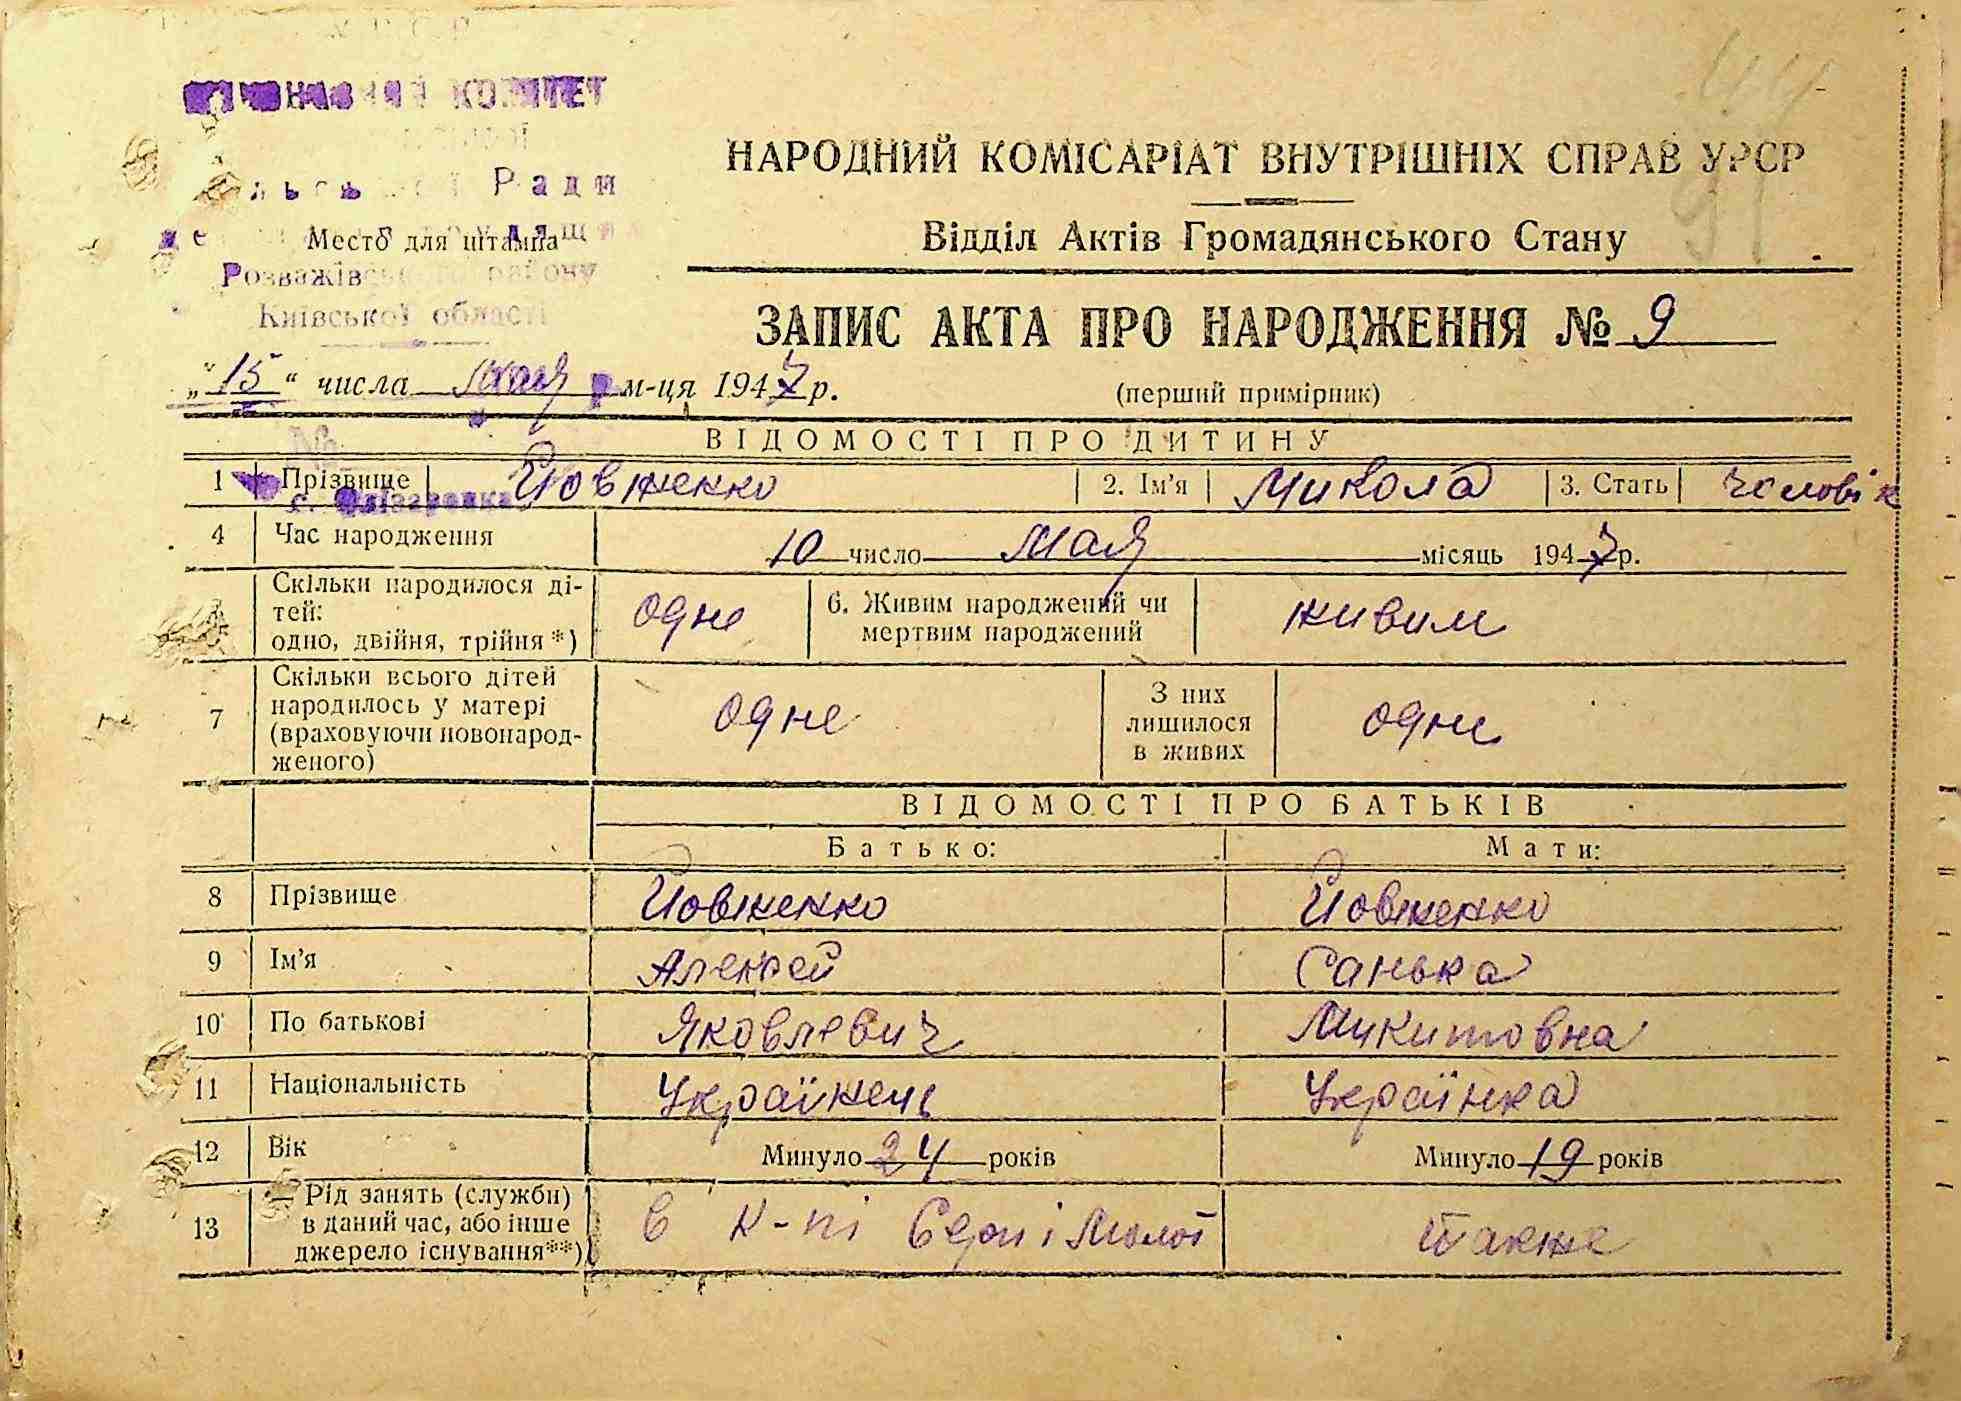 КОМІТЕТ
Ради
Место для штампа
Розважівського району
Київської області
НАРОДНИЙ КОМІСАРІАТ ВНУТРІШНІХ СПРАВ УРСР
Відділ Актів Громадянського Стану
ЗАПИС АКТА ПРО НАРОДЖЕННЯ № 9
„15“ числа мая м-ця 1947 р.
(перший примірник)
ВІДОМОСТІ ПРО ДИТИНУ
1 Прізвище Йовженко 2. Ім'я Микола 3. Стать чоловік
4 Час народження 10 число мая місяць 1947 р.
Скільки народилося ді-
тей:
одно, двійня, трійня *) одне 6. Живим народжений чи
мертвим народжений живим
7 Скільки всього дітей
народилось у матері
(враховуючи новонарод-
женого) одне З них
лишилося
в живих одне
ВІДОМОСТІ ПРО БАТЬКІВ
Батько: Мати:
8 Прізвище Йовженко Йовженко
9 Ім'я Алексей Санька
10 По батькові Яковлевич Микитовна
11 Національність Українець Українка
12 Вік Минуло 24 років Минуло 19 років
13 Рід занять (служби)
в даний час, або інше
джерело існування**) в к-пі Серп і Молот также